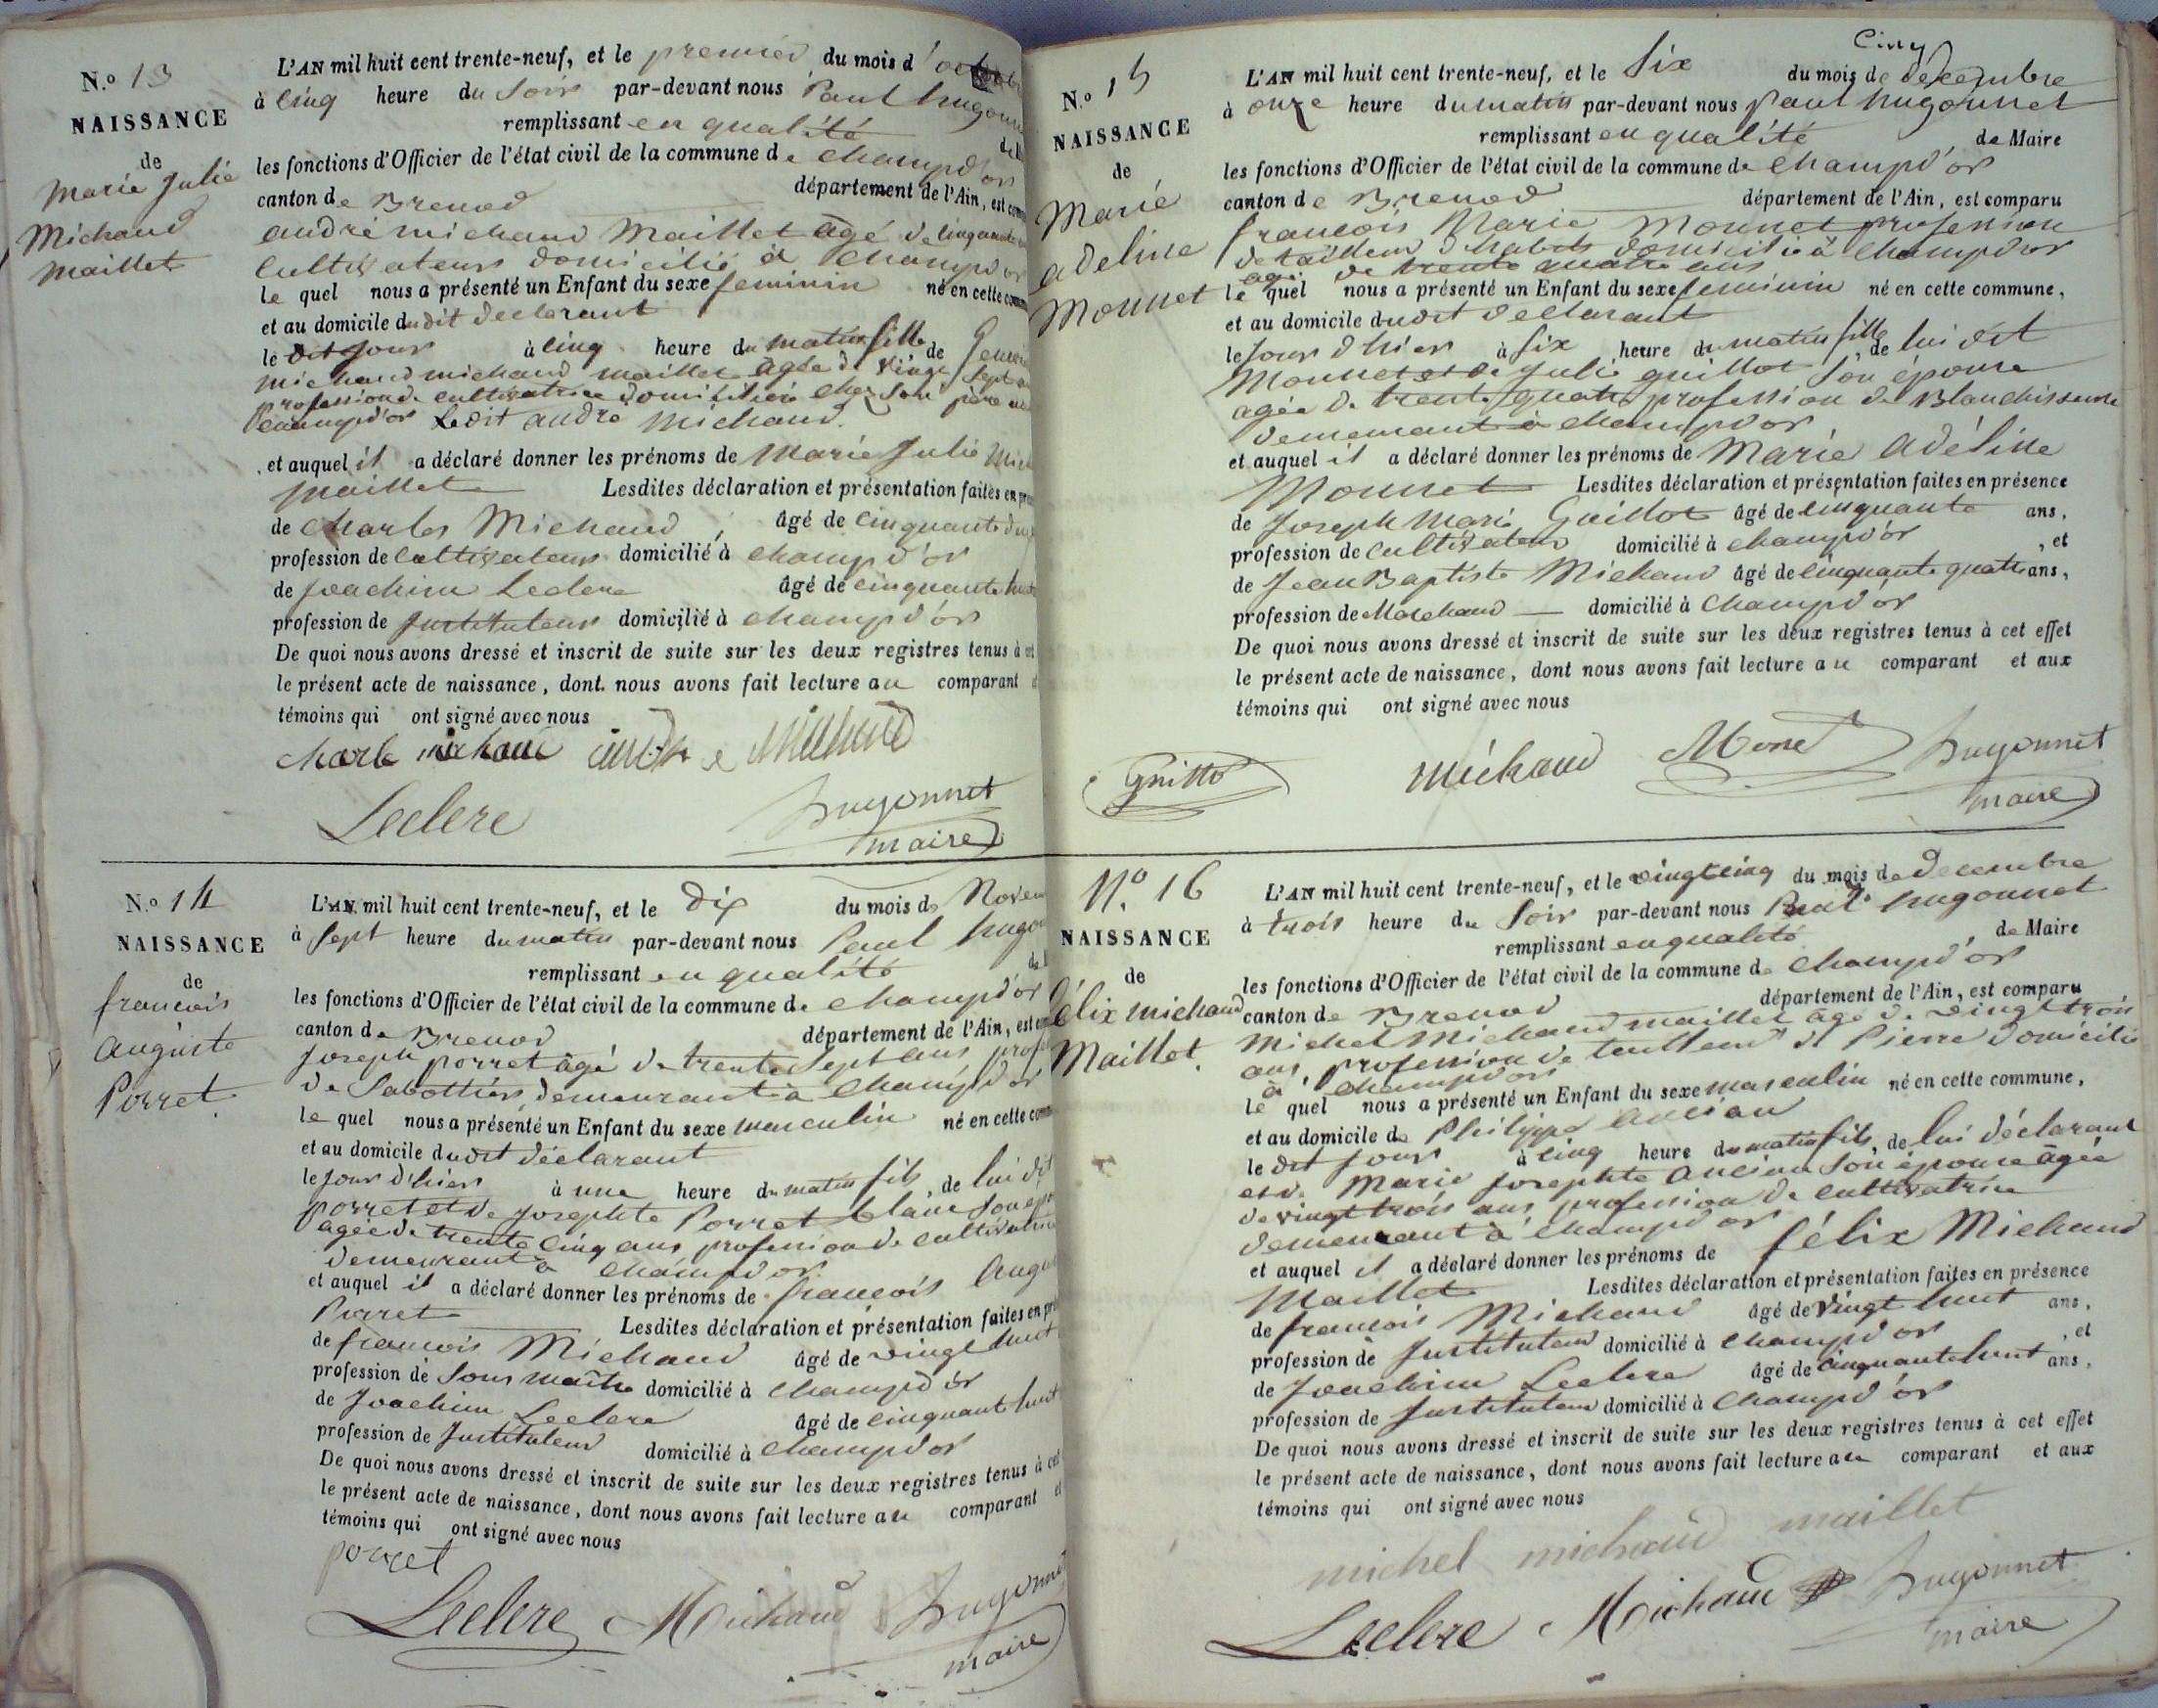 N.º 13
NAISSANCE
de
Marie Julie
Michaud
Maillet
L'AN mil huit cent trente-neuf, et le premier du mois d'
à cinq heure du soir par-devant nous Paul hugonn
remplissant en qualité
les fonctions d'Officier de l'état civil de la commune de Champd'or
canton de Brenod département de l'Ain, est com
andré michaud Maillet agé de cinquante
Cultivateur domicilié à Champd'or
le quel nous a présenté un Enfant du sexe feminin né en cette comm
et au domicile dudit declarant
le dit jour à cinq heure du matin fille de
michaud michaud maillet agée de vingt sept
profession de cultivatrice domiciliée chez son père
Champd'or Ledit andré Michaud.
et auquel il a déclaré donner les prénoms de Marie Julie Mich
Maillet Lesdites déclaration et présentation faites en pr
de Charles Michaud, âgé de cinquante
profession de Cultivateur domicilié à Champd'or
de Joachim Leclere âgé de cinquante huit
profession de Instituteur domicilié à Champd'or
De quoi nous avons dressé et inscrit de suite sur les deux registres tenus à cet
le présent acte de naissance, dont nous avons fait lecture au comparant
témoins qui ont signé avec nous
Charle michaud andre Michaud
Leclere hugonnet
maire
N.º 14
NAISSANCE
de
francois
auguste
Porret.
L'AN mil huit cent trente-neuf, et le dix du mois de Novem
à sept heure du matin par-devant nous Paul hugon
remplissant en qualité
les fonctions d'Officier de l'état civil de la commune de Champd'or
canton de Brenod département de l'Ain, est com
Joseph porret âgé de trente sept ans profe
de Sabottier, demeurant à Champd'or
le quel nous a présenté un Enfant du sexe masculin né en cette comm
et au domicile dudit déclarant
le jour d'hier à une heure du matin fils, de lui dit
porret et de Josephte Porret blanc son epo
agée de trente cinq ans profession de cultivatrice
demeurant à Champd'or.
et auquel il a déclaré donner les prénoms de francois Augus
Porret Lesdites déclaration et présentation faites en pr
de francois Michaud âgé de vingt huit
profession de Sous maître domicilié à Champd'or
de Joachim Leclere âgé de cinquante huit
profession de Instituteur domicilié à Champd'or
De quoi nous avons dressé et inscrit de suite sur les deux registres tenus à cet
le présent acte de naissance, dont nous avons fait lecture au comparant et
témoins qui ont signé avec nous
porret
Leclere Michaud hugonnet
maire
N.º 15
NAISSANCE
de
Marie
adeline
Monnet
Cinq
L'AN mil huit cent trente-neuf, et le Six du mois de decembre
à onze heure du matin par-devant nous paul hugonnet
remplissant en qualité de Maire
les fonctions d'Officier de l'état civil de la commune de Champd'or
canton de Brenod département de l'Ain, est comparu
francois Marie Monnet profession
de tailleur d'habits domicilié à Champd'or
agé de trente quatre ans
le quel nous a présenté un Enfant du sexe feminin né en cette commune,
et au domicile dudit declarant
le jour d'hier à six heure du matin fille, de lui dit
Monnet et de Julie guillot son épouse
agée de trente quatre profession de Blanchisseuse
demeurant à Champd'or
et auquel il a déclaré donner les prénoms de Marie Adéline
Monnet Lesdites déclaration et présentation faites en présence
de Joseph Marie Guillot âgé de cinquante ans,
profession de Cultivateur domicilié à Champd'or, et
de Jean Baptiste Michaud âgé de cinquante quatre ans,
profession de Marchand domicilié à Champd'or
De quoi nous avons dressé et inscrit de suite sur les deux registres tenus à cet effet
le présent acte de naissance, dont nous avons fait lecture au comparant et aux
témoins qui ont signé avec nous
michaud Monet hugonnet
maire
N.º 16
NAISSANCE
de
félix michaud
Maillet.
L'AN mil huit cent trente-neuf, et le vingt cinq du mois de Decembre
à trois heure du Soir par-devant nous Paul hugonnet
remplissant en qualité de Maire
les fonctions d'Officier de l'état civil de la commune de Champd'or
canton de Brenod département de l'Ain, est comparu
Michel Michaud maillet agé de vingt trois
ans, profession de tailleur d Pierre domicilié
à Champd'or
le quel nous a présenté un Enfant du sexe masculin né en cette commune,
et au domicile de Philippe ancian
le dit jour à cinq heure du matin fils, de lui déclarant
et de Marie Josephte Ancian son épouse âgée
de vingt trois ans profession de cultivatrice
demeurant à Champd'or
et auquel il a déclaré donner les prénoms de félix Michaud
Maillet Lesdites déclaration et présentation faites en présence
de francois Michaud âgé de vingt huit ans,
profession de Instituteur domicilié à Champd'or, et
de Joachim Leclere âgé de cinquante huit ans,
profession de Instituteur domicilié à Champd'or
De quoi nous avons dressé et inscrit de suite sur les deux registres tenus à cet effet
le présent acte de naissance, dont nous avons fait lecture au comparant et aux
témoins qui ont signé avec nous
michel michaud maillet
Leclere Michaud hugonnet
maire